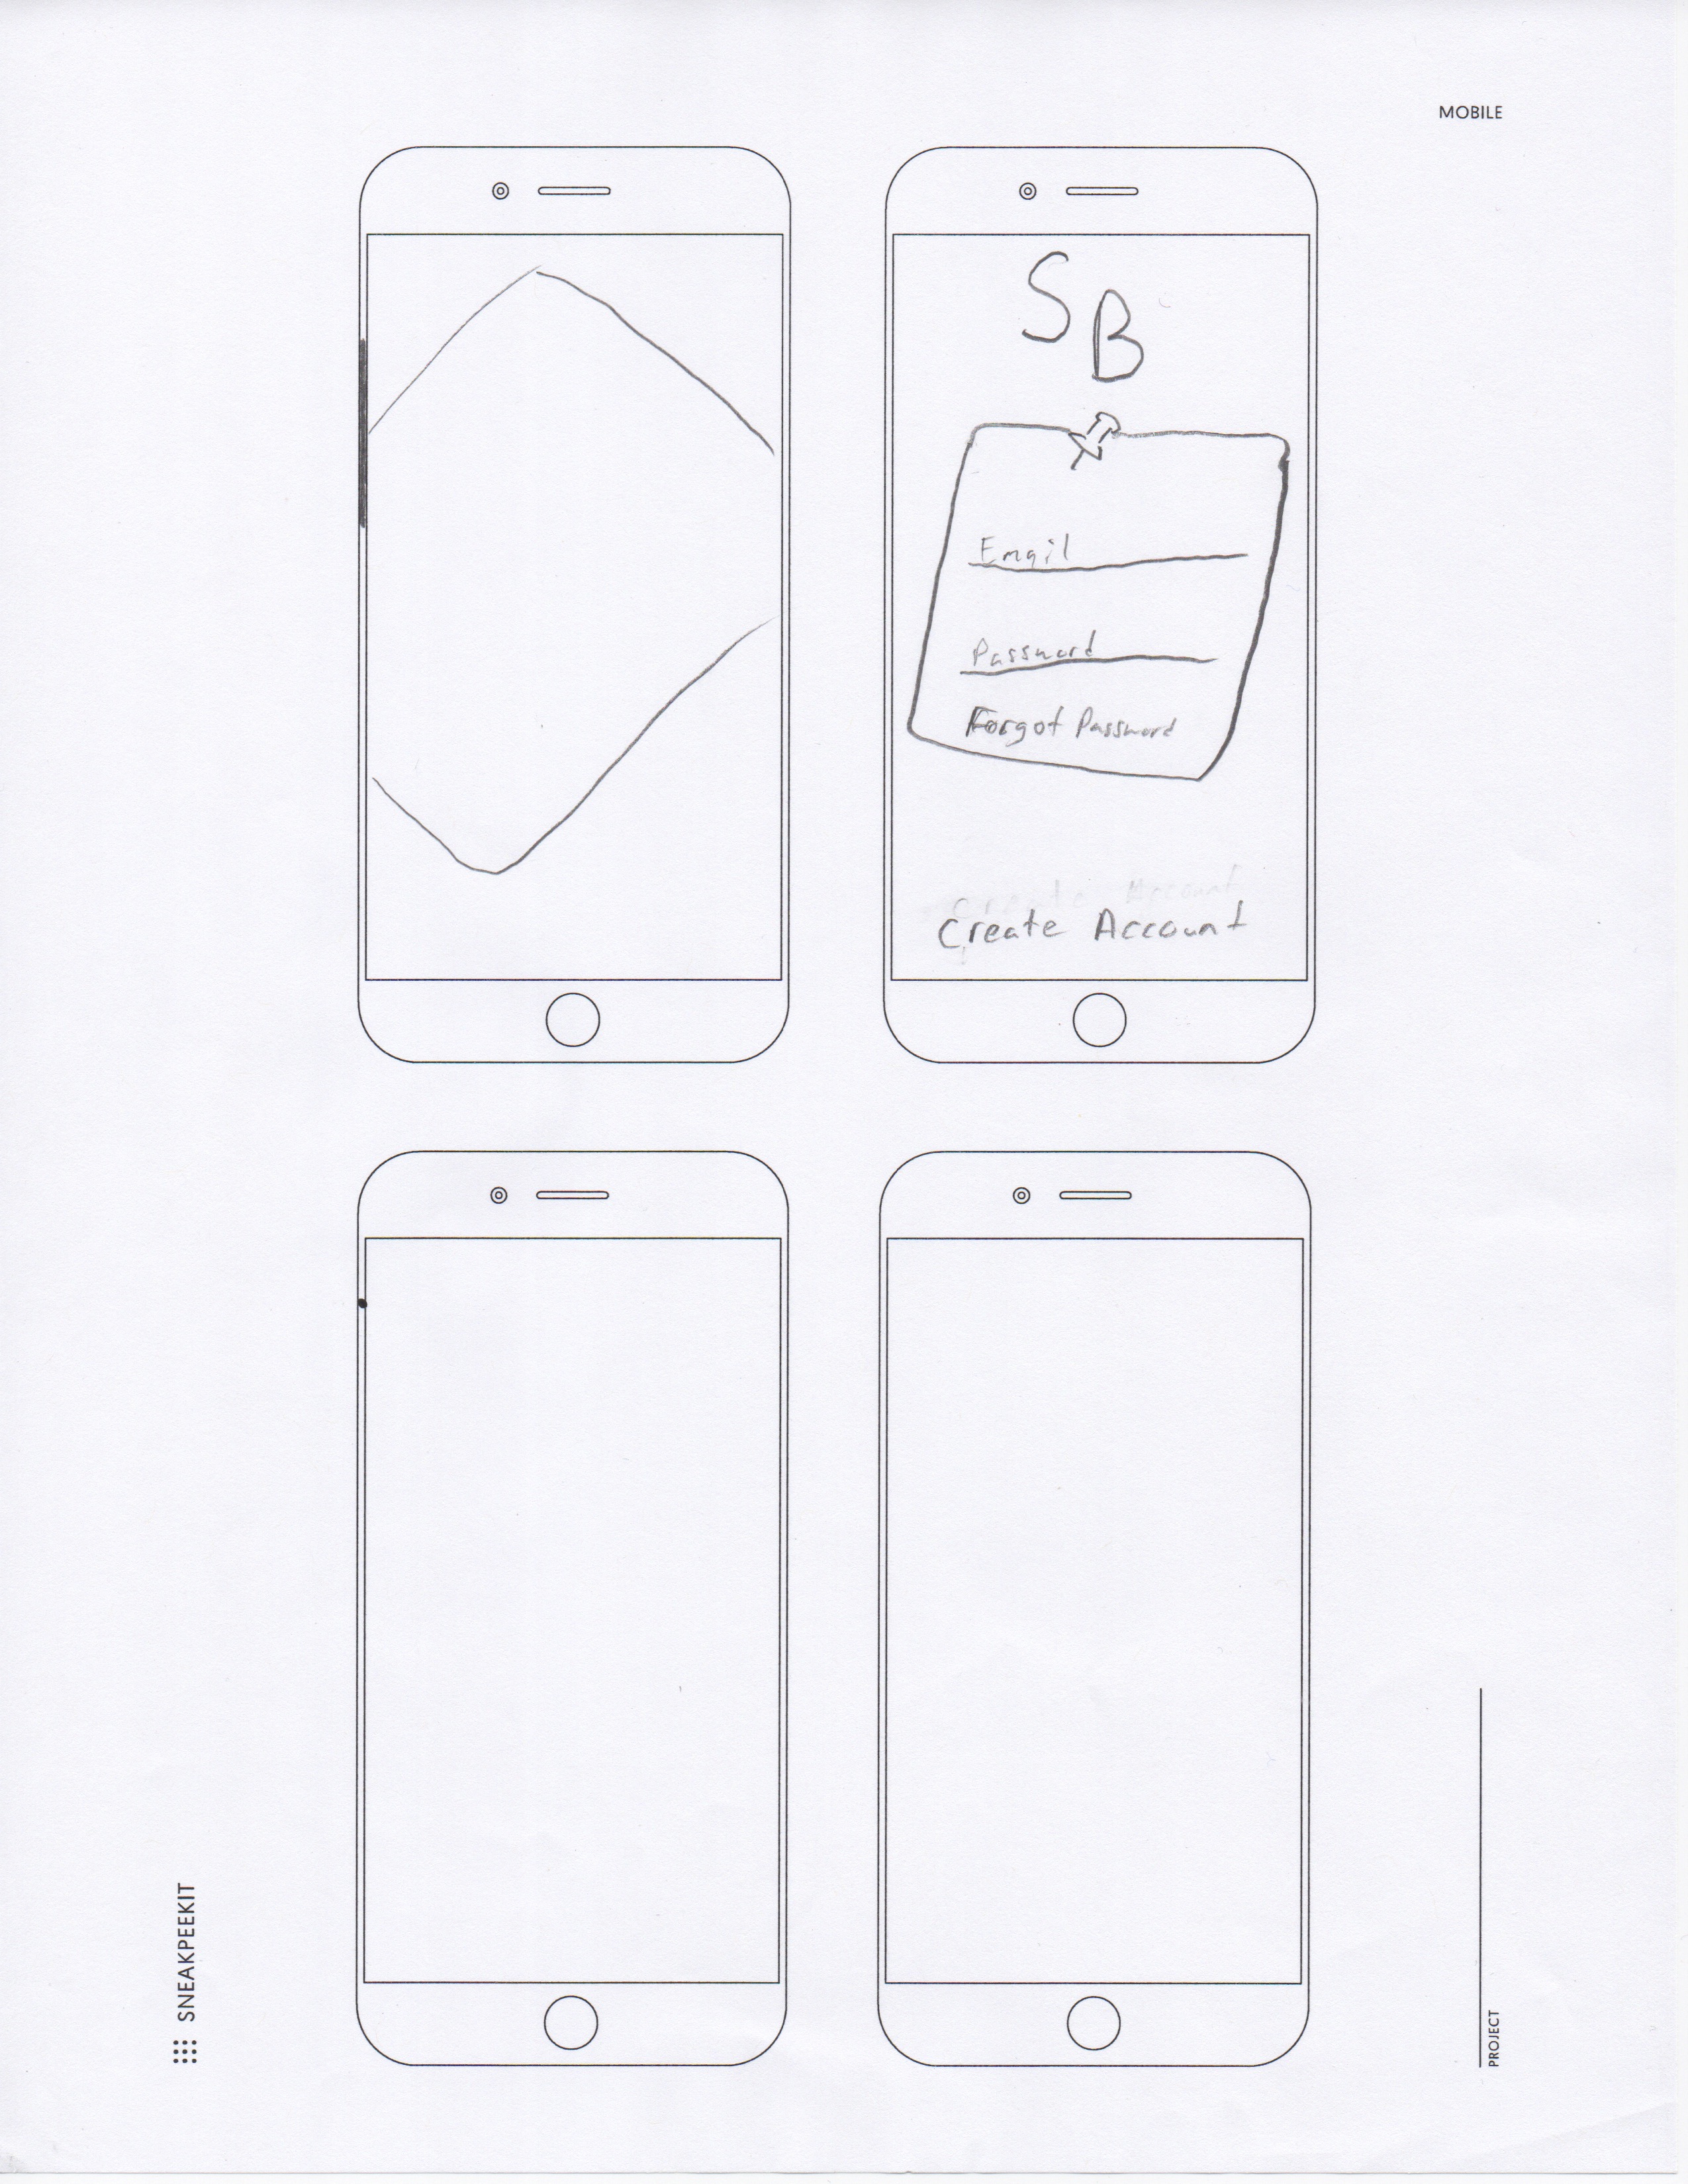 MOBILE
S
B
Email
Password
Forgot Password
Create Account
Create Account
SNEAKPEEKIT
PROJECT